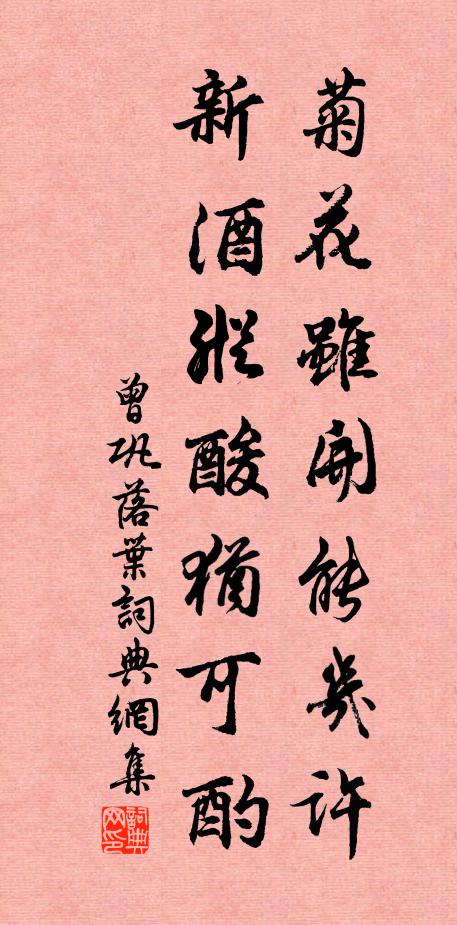 菊花雖開能幾許
新酒縱酸猶可酌
曾巩落葉詞典網集
詞典網印